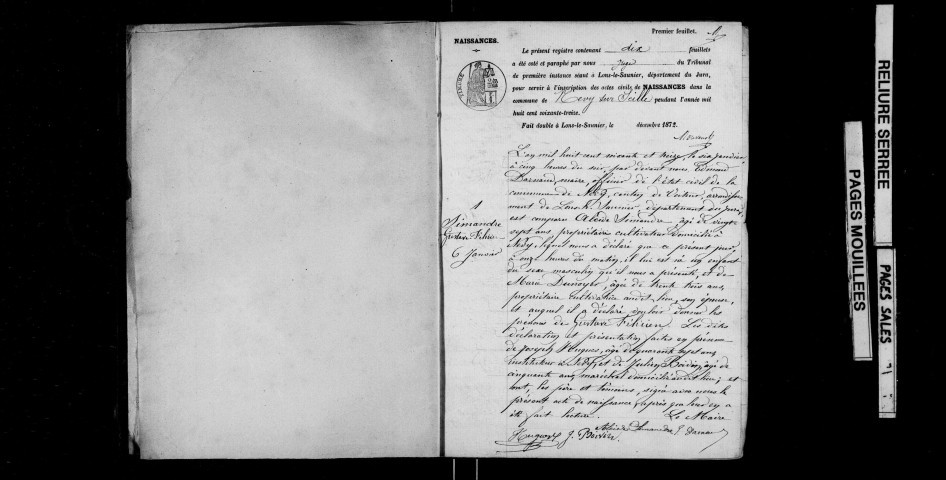 Premier feuillet.
NAISSANCES.
Le présent registre contenant dix feuillets
a été coté et paraphé par nous Juge du Tribunal
de première instance séant à Lons-le-Saunier, département du Jura,
pour servir à l'inscription des actes civils de NAISSANCES dans la
commune de Nevy sur Seille pendant l'année mil
huit cent soixante-treize.
Fait double à Lons-le-Saunier, le décembre 1872.
TIMBRE
L'an mil huit cent soixante et treize, le six janvier
à cinq heures du soir, par devant nous Edmond
maire, officier de l'état civil de la
commune de Nevy, canton de Voiteur, arrondisse-
ment de Lons-le-Saunier, département du Jura,
est comparu Alcide Simandre, âgé de vingt
sept ans, propriétaire cultivateur domicilié à
Nevy, lequel nous a déclaré que ce présent jour,
à onze heures du matin, il lui est né un enfant
du sexe masculin qu'il nous a présenté, et de
Marie âgée de trente trois ans,
propriétaire cultivatrice audit lieu, son épouse,
et auquel il a déclaré vouloir donner les
prénoms de Gustave Félicien. Les dites
déclaration et présentation faites en présence
de Joseph Hugues, âgé de quarante sept ans,
instituteur à Nevy, et de Julien Boivin, âgé de
cinquante ans, maréchal domicilié audit lieu, et
ont, les père et témoins, signé avec nous le
présent acte de naissance après que lecture
a été fait lecture. Le Maire
1
Simandre
Gustave Félicien
6 Janvier
Hugues J. Boivin Alcide Simandre E.
RELIURE SERREE
PAGES MOUILLEES
PAGES SALES